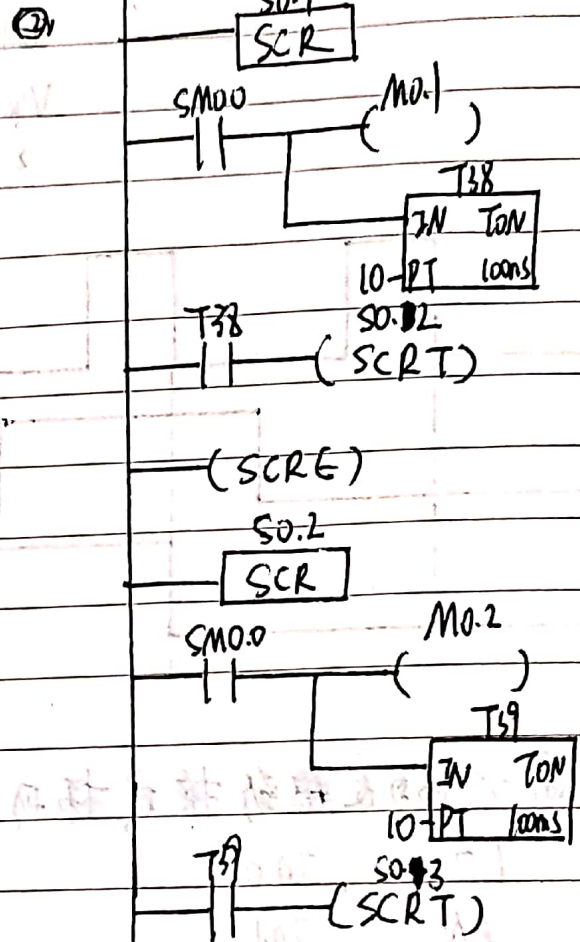 ②
S0.1
SCR
SM0.0 M0.1
( )
T38
IN TON
10 PT 100ms
T38 S0.2
( SCRT )
( SCRE )
S0.2
SCR
SM0.0 M0.2
( )
T39
IN TON
10 PT 100ms
T39 S0.3
( SCRT )